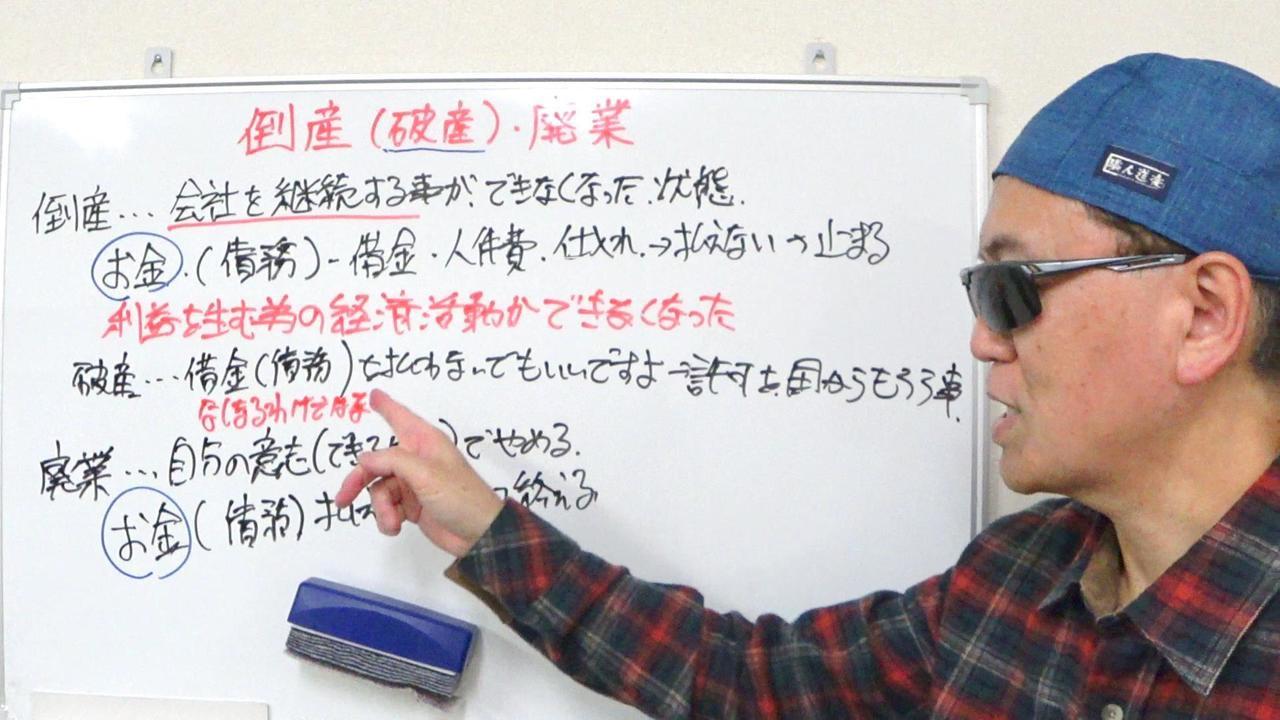 倒産(破産)・廃業
倒産…会社を継続する事が、できなくなった、状態.
お金・(債務)-借金・人件費.仕入れ.→払えない→止まる
利益を生む為の経済活動ができなくなった
破産…借金(債務)を払わないでもいいですよ→許可を国からもらう事.
廃業…自分の意志(できる)でやめる.
お金(債務)払 終える